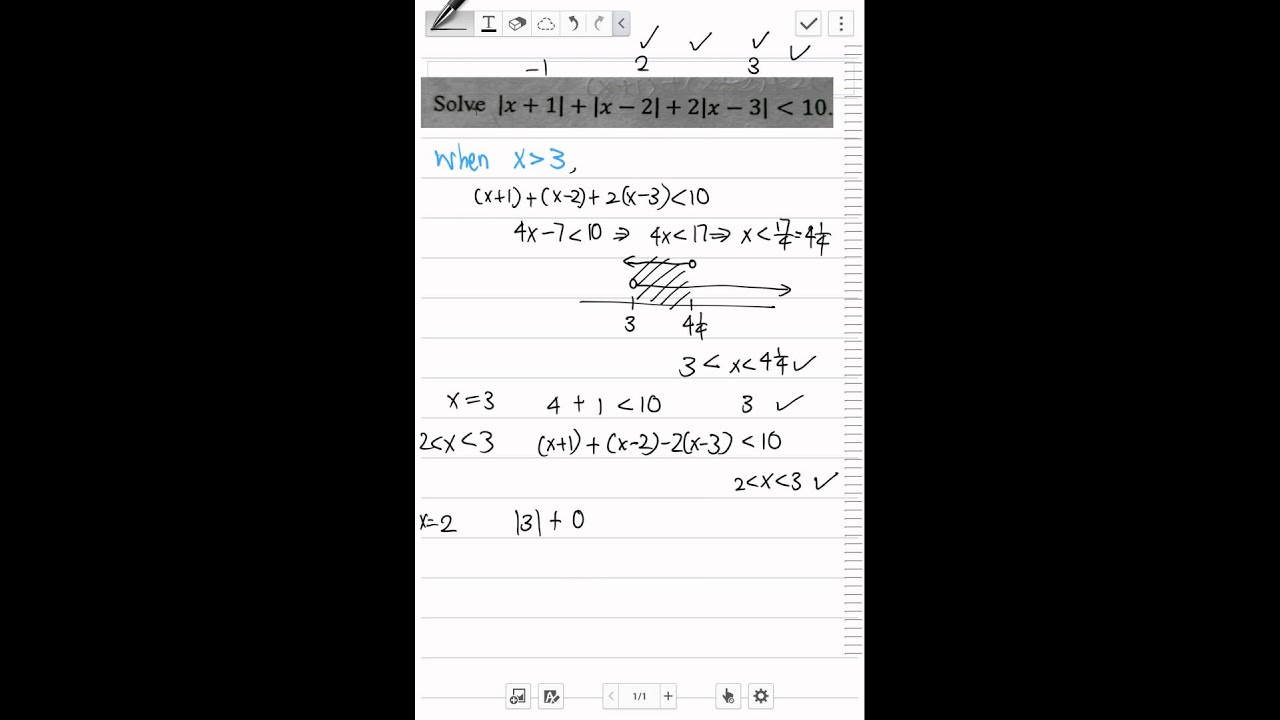 T
-1 2 3
Solve |x + 1| + |x − 2| + 2|x − 3| < 10.
When x>3
(x+1)+(x-2)+2(x-3)<10
4x-7<10 ⇒ 4x<17 ⇒ x<17/4=4 1/4
3 4 1/4
3 < x < 4 1/4 ✓
x=3 4 + 1 < 10 3 ✓
2<x<3 (x+1)+(x-2)-2(x-3) < 10
2<x<3 ✓
x=2 |3| + 0
1/1